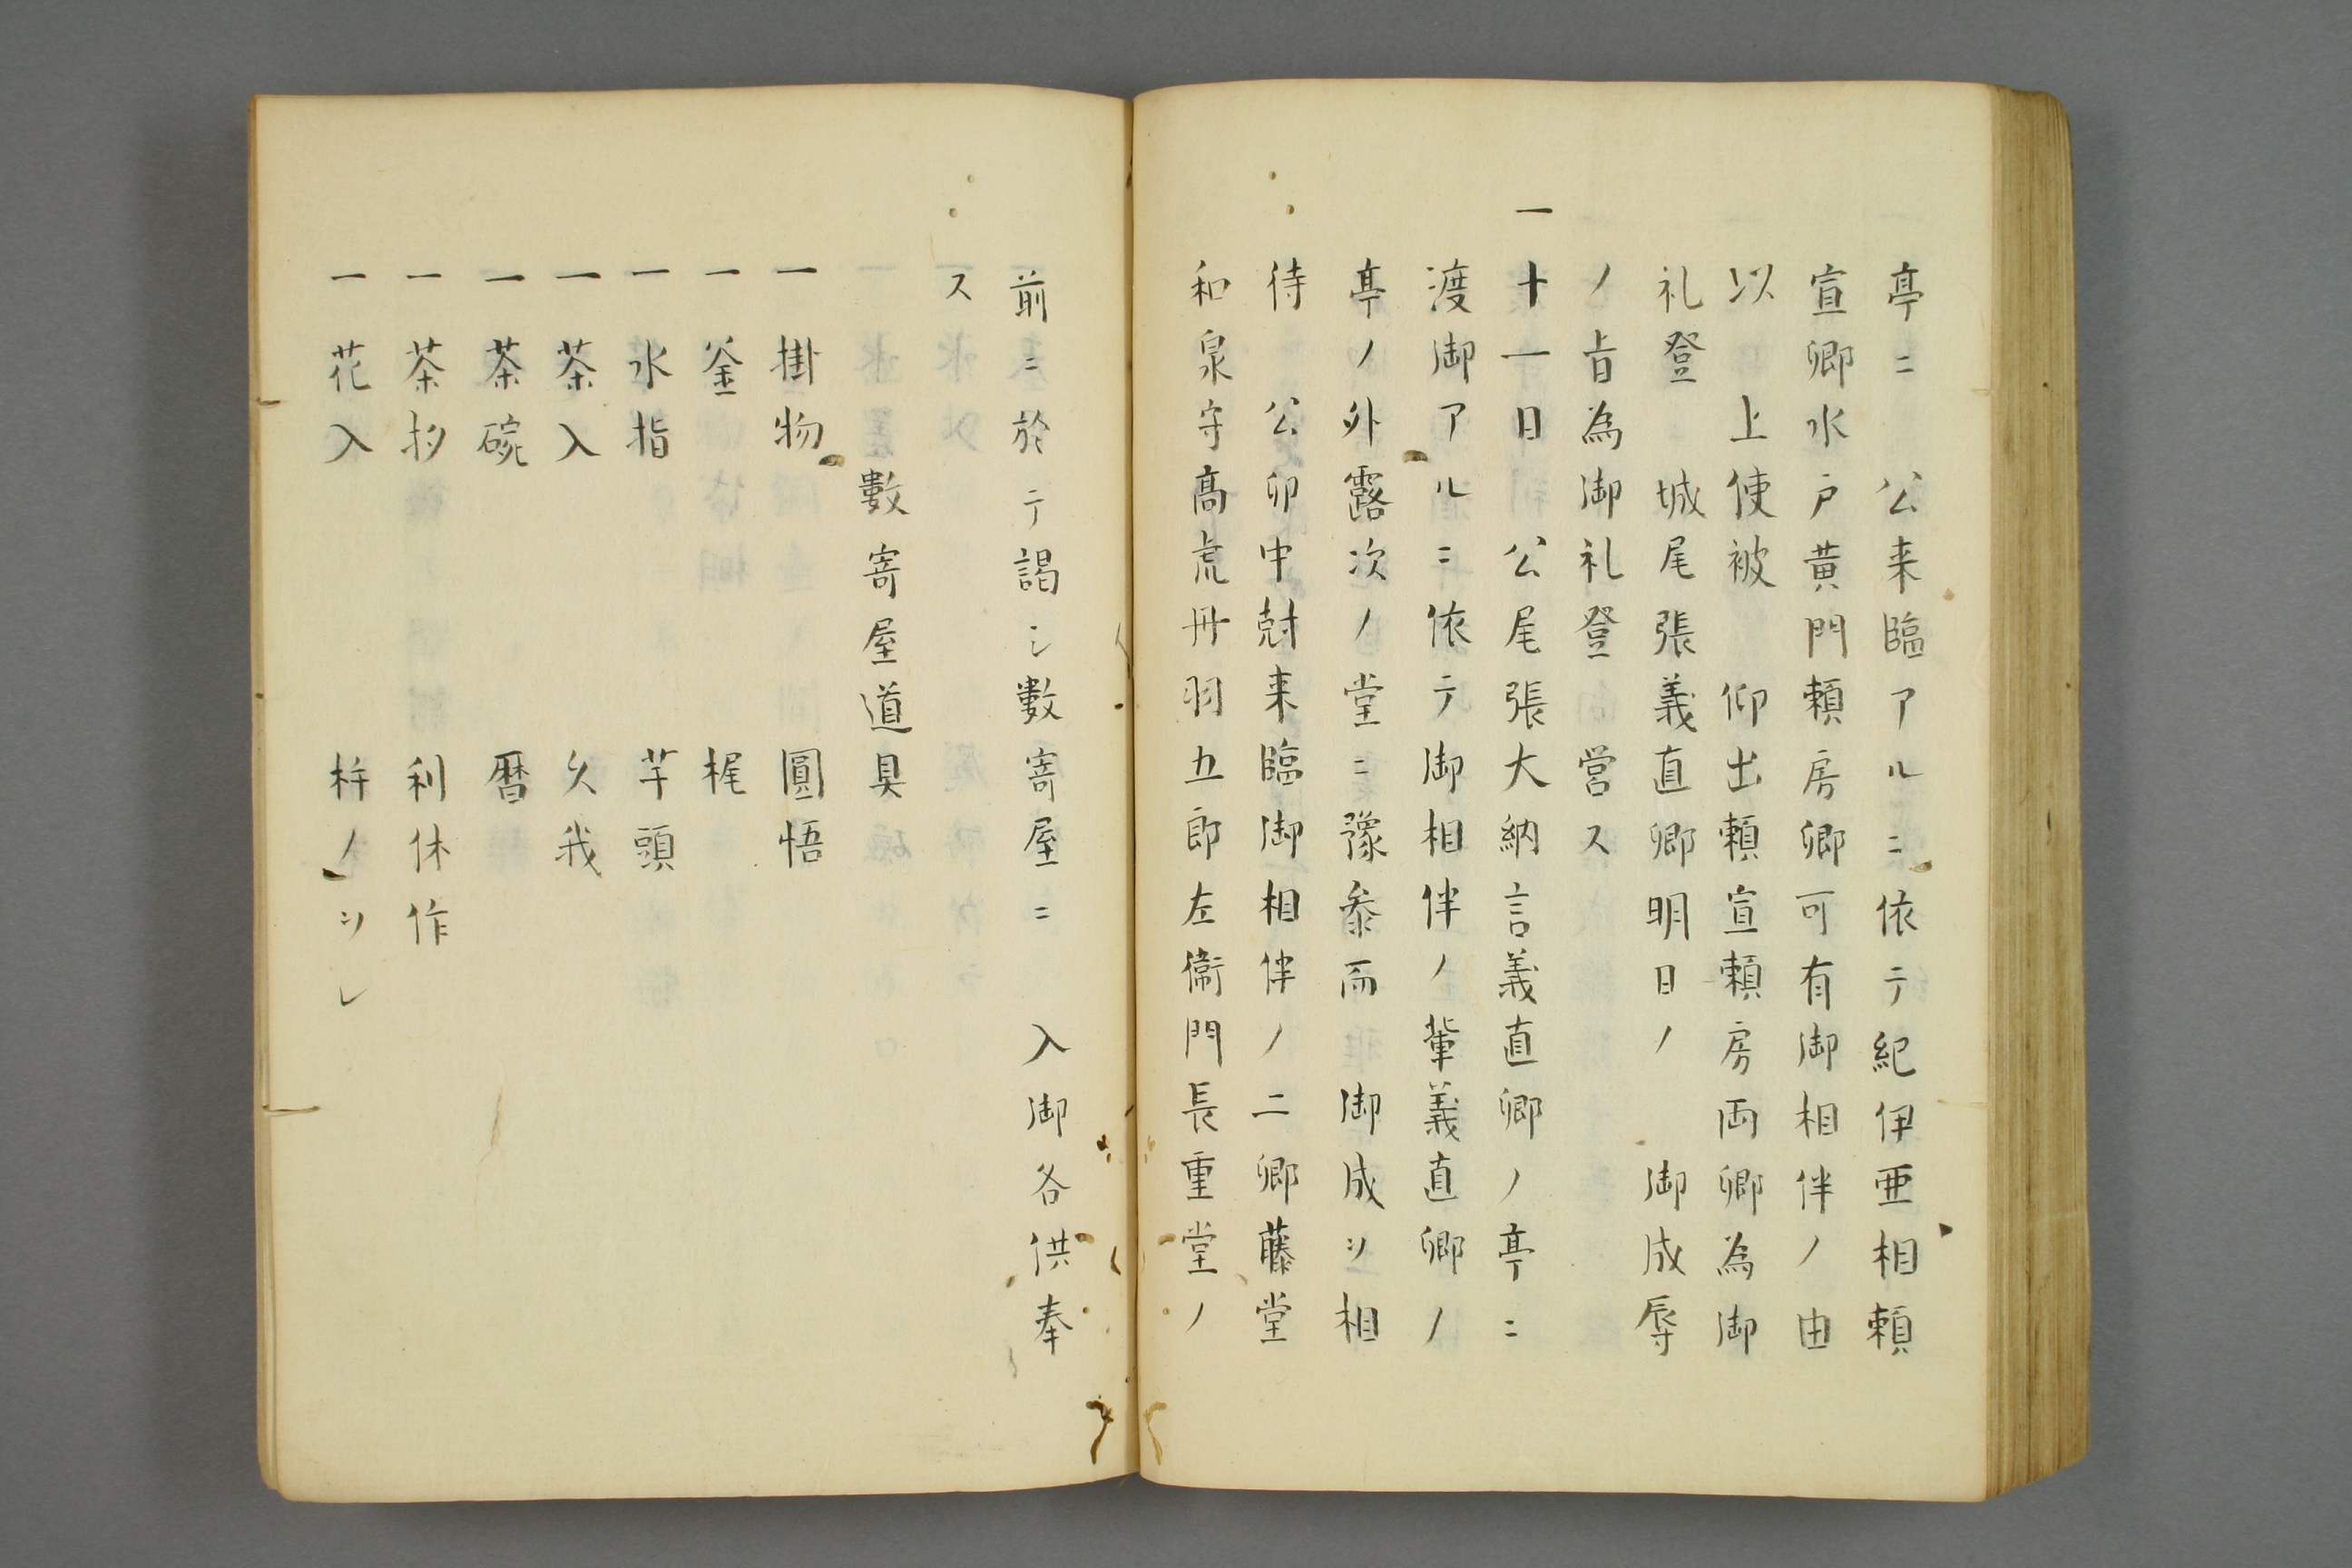 亭ニ　公来臨アルニ依テ紀伊亜相頼
宣卿水戸黄門頼房卿可有御相伴ノ由
以　上使被　仰出頼宣頼房両卿為御
礼登　城尾張義直卿明日ノ　御成辱
ノ旨為御礼登営ス
一十一日　公尾張大納言義直卿ノ亭ニ
渡御アルニ依テ御相伴ノ輩義直卿ノ
亭ノ外露次ノ堂ニ豫参而　御成ヲ相
待　公卯中尅来臨御相伴ノ二卿藤堂
和泉守高虎丹羽五郎左衛門長重堂ノ
前ニ於テ謁シ数寄屋ニ　入御各供奉
ス
數寄屋道具
一掛物　圓悟
一釜　梶
一水指　芋頭
一茶入　久我
一茶碗　暦
一茶杓　利休作
一花入　杵ノヲレ